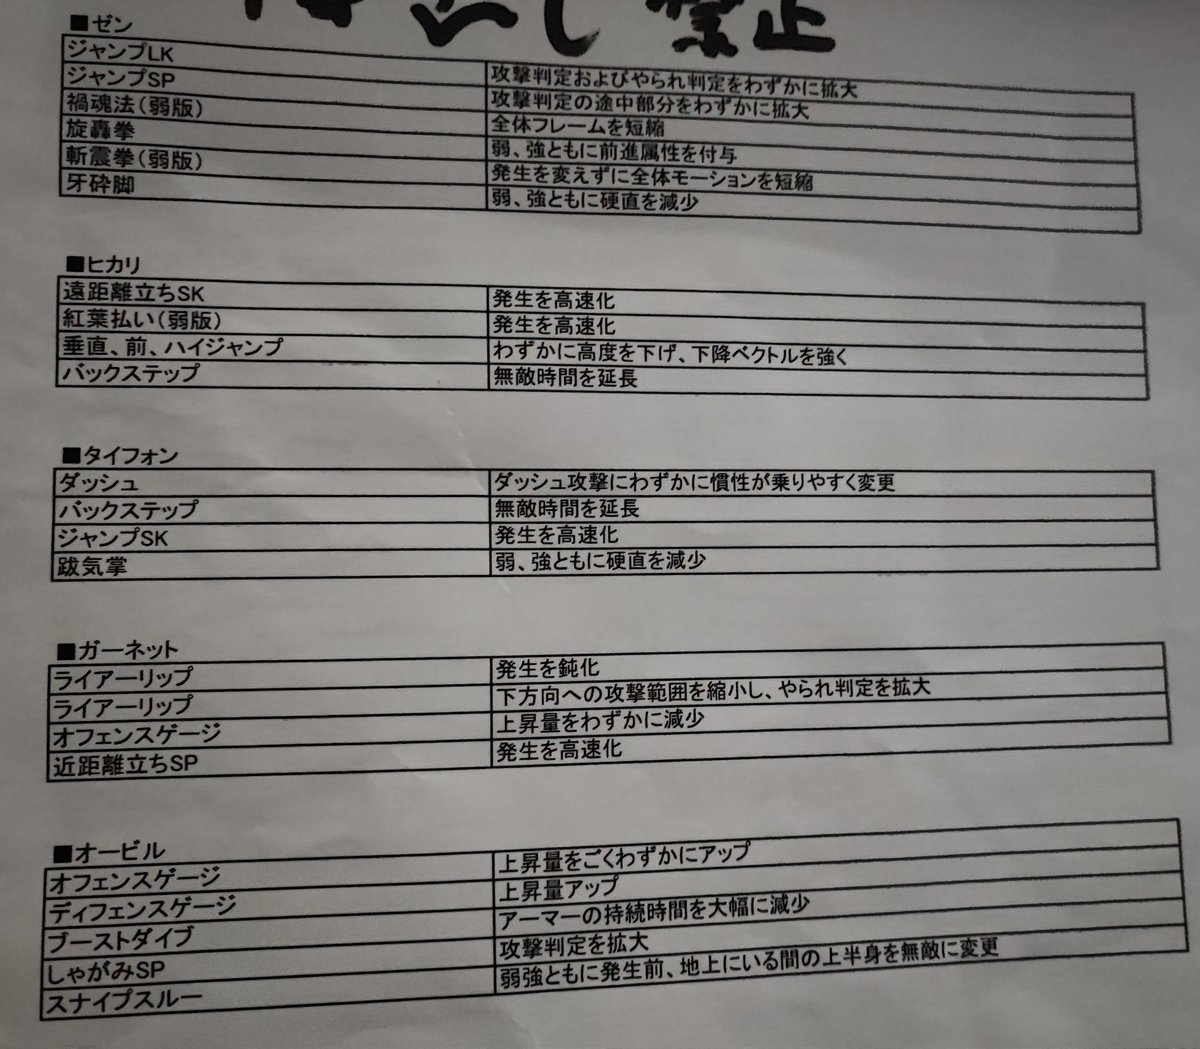 し禁止
■ゼン
ジャンプLK 攻撃判定およびやられ判定をわずかに拡大
ジャンプSP 攻撃判定の途中部分をわずかに拡大
禍魂法(弱版) 全体フレームを短縮
旋轟拳 弱、強ともに前進属性を付与
斬震拳(弱版) 発生を変えずに全体モーションを短縮
牙砕脚 弱、強ともに硬直を減少
■ヒカリ
遠距離立ちSK 発生を高速化
紅葉払い(弱版) 発生を高速化
垂直、前、ハイジャンプ わずかに高度を下げ、下降ベクトルを強く
バックステップ 無敵時間を延長
■タイフォン
ダッシュ ダッシュ攻撃にわずかに慣性が乗りやすく変更
バックステップ 無敵時間を延長
ジャンプSK 発生を高速化
跋気掌 弱、強ともに硬直を減少
■ガーネット
ライアーリップ 発生を鈍化
ライアーリップ 下方向への攻撃範囲を縮小し、やられ判定を拡大
オフェンスゲージ 上昇量をわずかに減少
近距離立ちSP 発生を高速化
■オービル
オフェンスゲージ 上昇量をごくわずかにアップ
ディフェンスゲージ 上昇量アップ
ブーストダイブ アーマーの持続時間を大幅に減少
しゃがみSP 攻撃判定を拡大
スナイプスルー 弱強ともに発生前、地上にいる間の上半身を無敵に変更